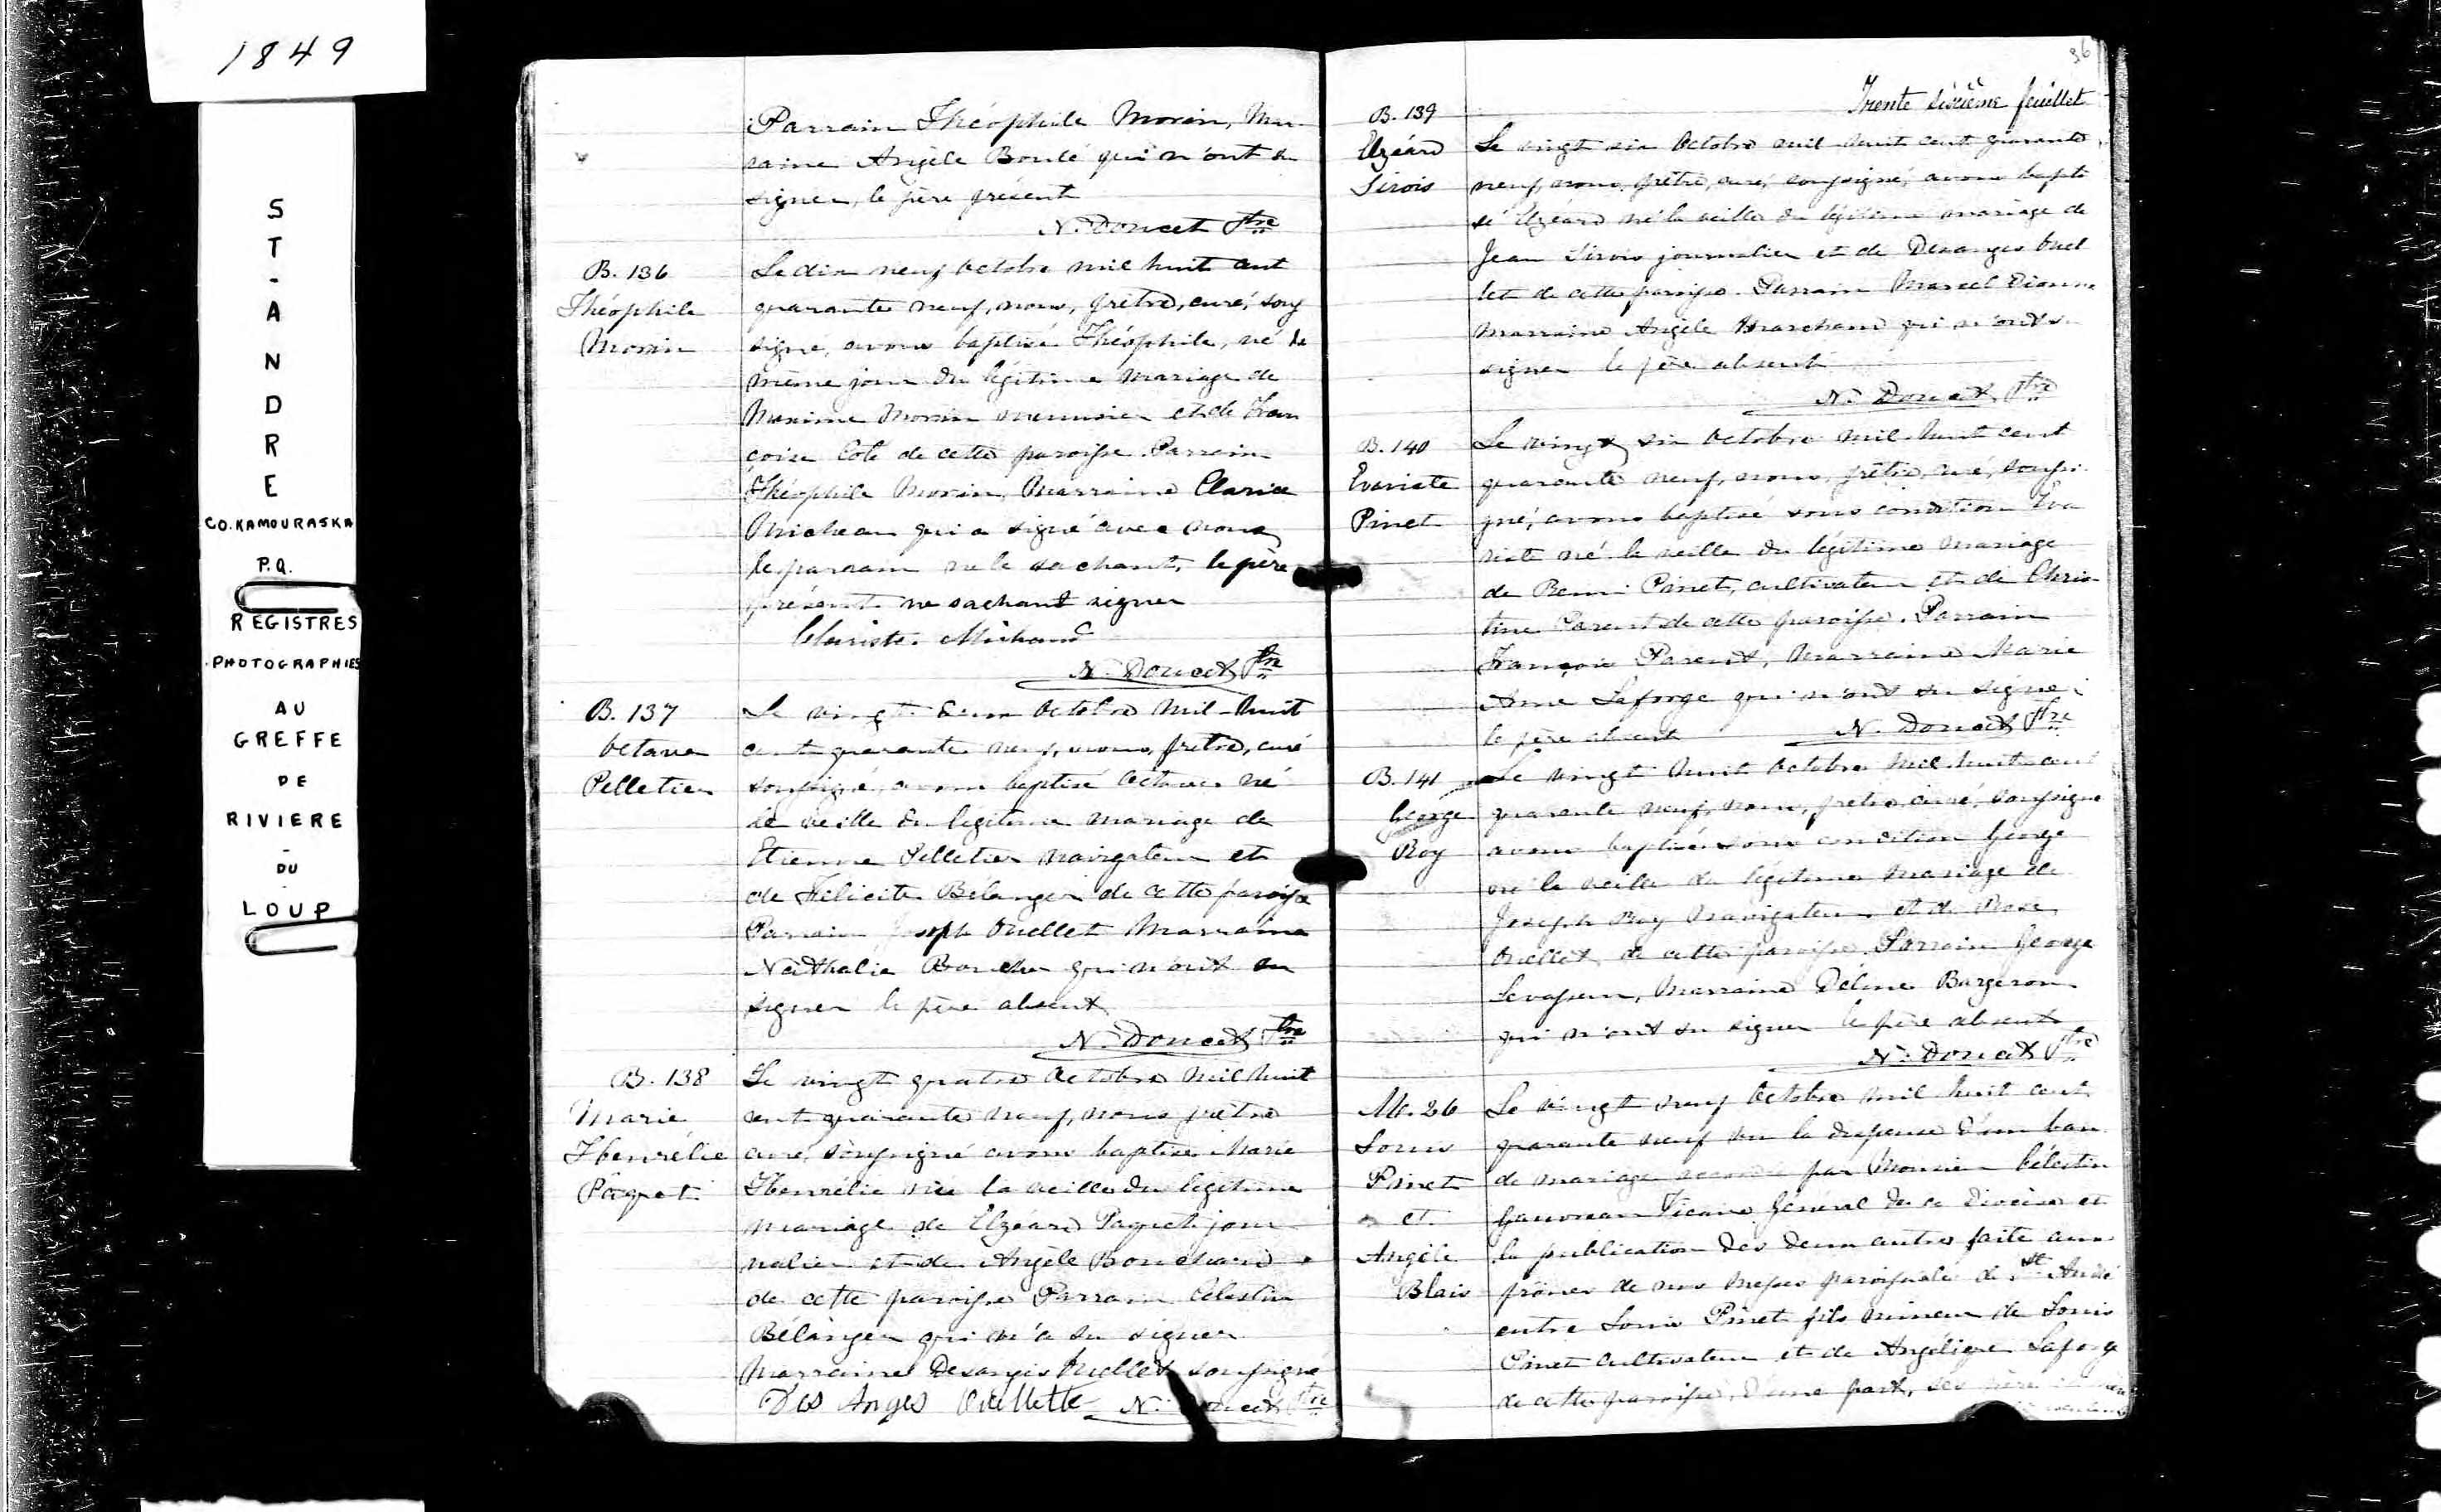 1849
ST-ANDRE
CO. KAMOURASKA
P.Q.
REGISTRES
PHOTOGRAPHIES
AU
GREFFE
DE
RIVIERE
-
DU
LOUP
Parrain Théophile Morin, Mar
raine Angèle Boulé qui n'ont su
signer, le père présent
N. Doucet Ptre
B. 136
Théophile
Morin
Le dix neuf Octobre mil huit cent
quarante neuf, nous, prêtre, curé, sous
signé, avons baptisé Théophile, né le
même jour du légitime mariage de
Maxime Morin menuisier et de Fran
çoise Coté de cette paroisse. Parrain
Théophile Morin, Marraine Clarice
Micheau qui a signé avec nous
le parrain ne le sachant, le père
présent ne sachant signer
Clariste Michaud
N. Doucet Ptre
B. 137
Octave
Pelletier
Le vingt deux Octobre mil huit
cent quarante neuf, nous, prêtre, curé
soussigné, avons baptisé Octave né
la veille du légitime mariage de
Etienne Pelletier navigateur et
de Félicité Bélanger de cette paroisse
Parrain Joseph Ouellet Marraine
Nathalie Boucher qui n'ont su
signer le père absent
N. Doucet Ptre
B. 138
Marie
Henrélie
Paquet
Le vingt quatre Octobre mil huit
cent quarante neuf, nous prêtre
curé, soussigné avons baptisé Marie
Henrélie née la veille du légitime
mariage de Elzéard Paquet jour
nalier et de Angèle Bouchard
de cette paroisse Parrain Célestin
Bélanger qui n'a su signer
Marraine Desanges Ouellet soussigné
Des Anges Ouellette N. Doucet Ptre
36
Trente sixième feuillet
B. 139
Elzéard
Sirois
Le vingt six Octobre mil huit cent quarante
neuf, nous, prêtre, curé, soussigné, avons bapti
sé Elzéard né la veille du légitime mariage de
Jean Sirois journalier et de Desanges Ouel
let de cette paroisse. Parrain Marcel Dionne
Marraine Angèle Marchand qui n'ont su
signer le père absent
N. Doucet Ptre
B. 140
Evariste
Pinet
Le vingt six Octobre mil huit cent
quarante neuf, nous, prêtre, curé, soussi
gné, avons baptisé sous condition Eva
riste né la veille du légitime mariage
de Remi Pinet, cultivateur et de Chris
tine Parent de cette paroisse. Parrain
François Parent, Marraine Marie
Anne Laforge qui n'ont su signer
le père absent N. Doucet Ptre
B. 141
George
Roy
Le vingt huit Octobre mil huit cent
quarante neuf, nous, prêtre, curé, soussigné
avons baptisé sous condition George
né la veille du légitime mariage de
Joseph Roy Navigateur et de Rose
Ouellet de cette paroisse. Parrain George
Levasseur, Marraine Deline Bargeron
qui n'ont su signer le père absent
N. Doucet Ptre
M. 26
Louis
Pinet
et
Angèle
Blais
Le vingt neuf Octobre mil huit cent
quarante neuf vu la dispense d'un ban
de mariage accordée par Monsieur Célestin
Gauvreau Vicaire Général de ce Diocèse et
la publication des deux autres faite aux
prônes de nos messes paroissiales de St André
entre Louis Pinet fils mineur de Louis
Pinet cultivateur et de Angélique Laforge
de cette paroisse, d'une part, ses père